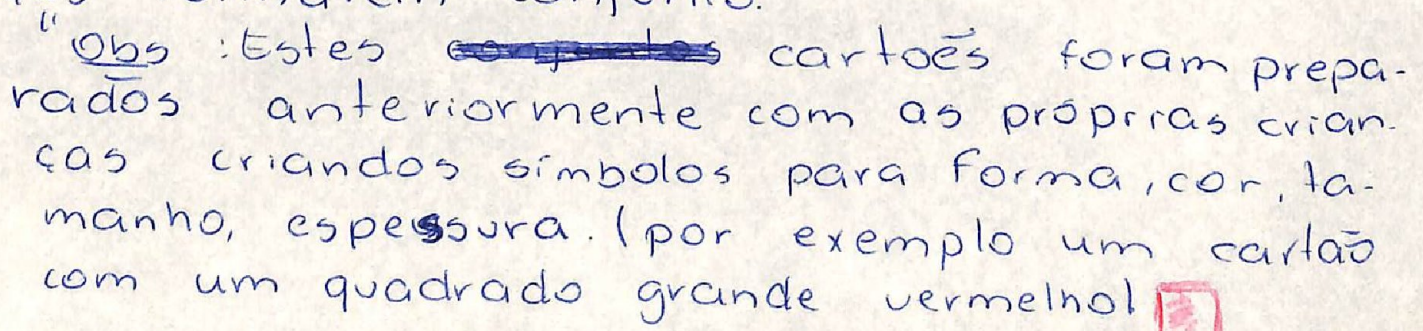 "Obs : Estes cartões foram prepa-
rados anteriormente com as próprias crian-
ças criandos símbolos para forma, cor, ta-
manho, espessura. (por exemplo um cartão
com um quadrado grande vermelho)